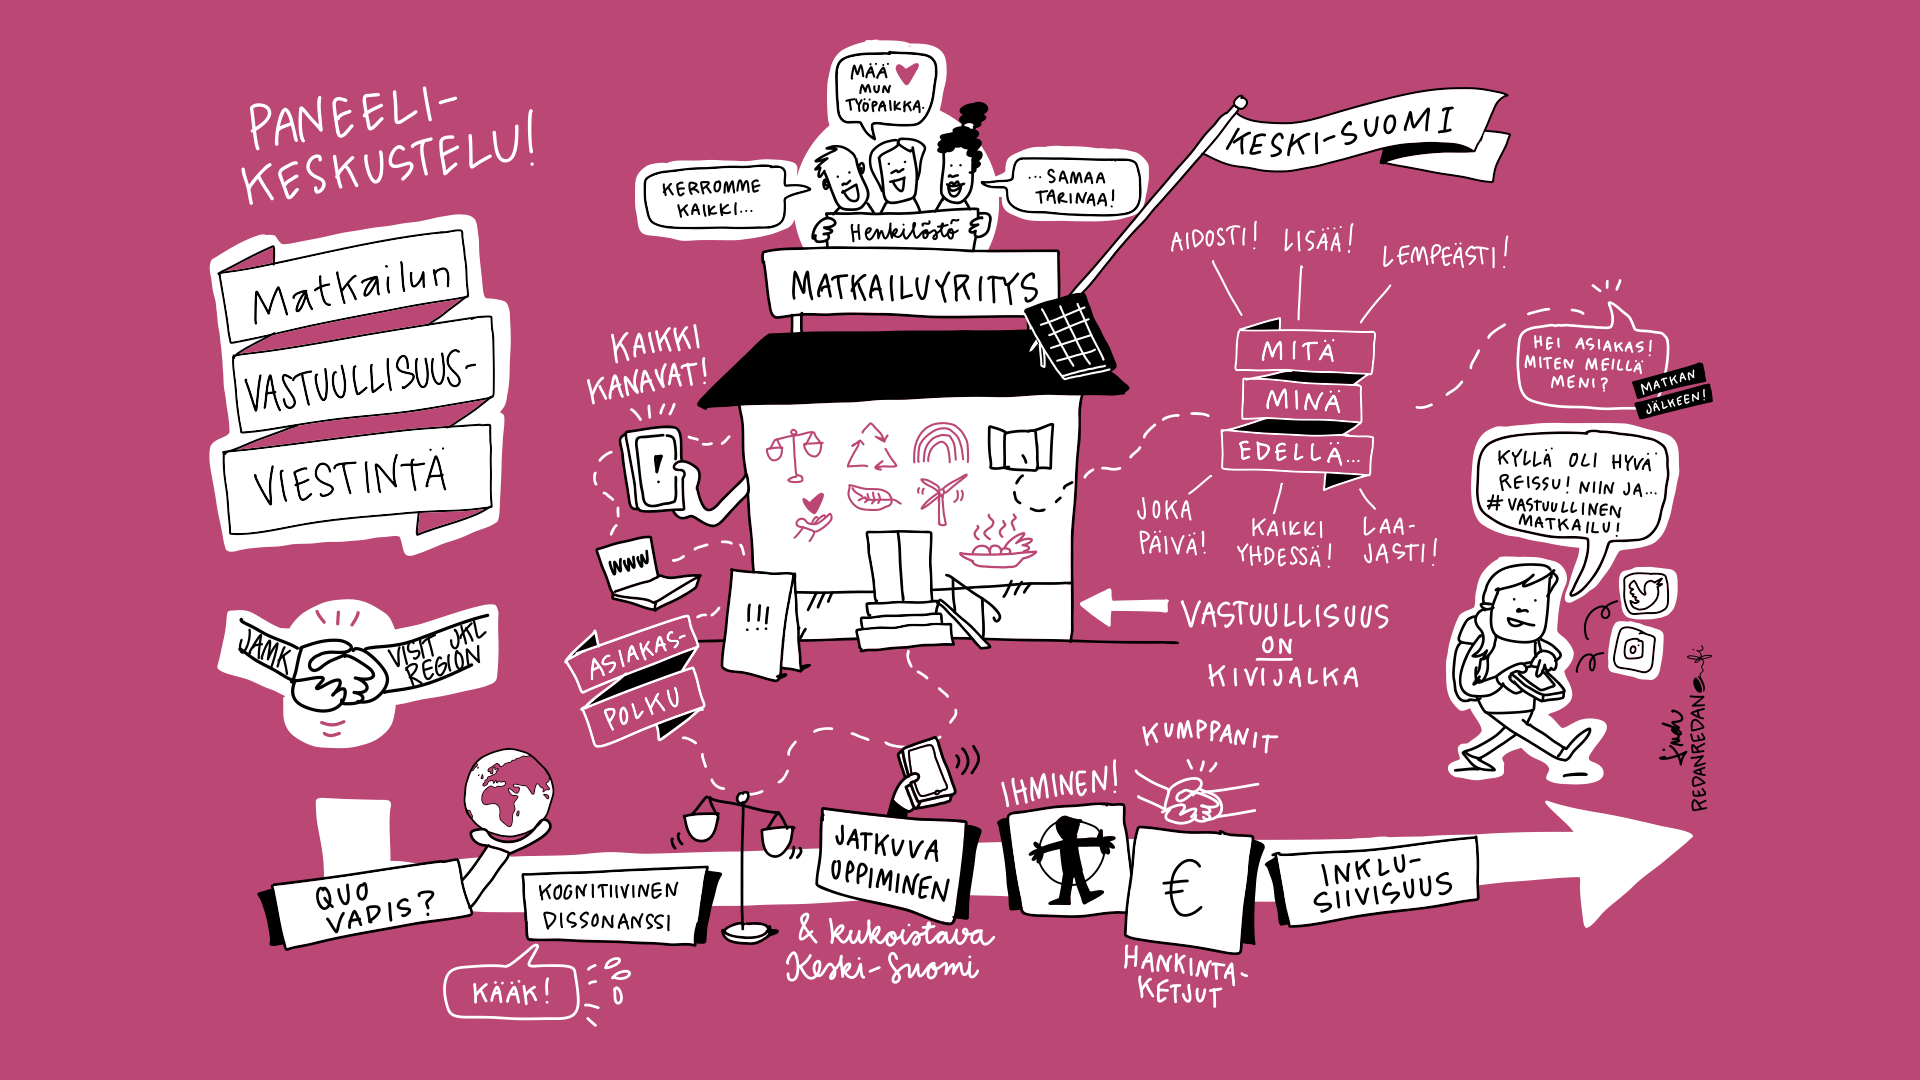 PANEELI-
KESKUSTELU!
Matkailun
VASTUULLISUUS-
VIESTINTÄ
JAMK
VISIT JKL
REGION
MÄÄ
MUN
TYÖPAIKKA.
KERROMME
KAIKKI...
...SAMAA
TARINAA!
Henkilöstö
MATKAILUYRITYS
KESKI-SUOMI
KAIKKI
KANAVAT!
!
WWW
!!!
ASIAKAS-
POLKU
AIDOSTI!
LISÄÄ!
LEMPEÄSTI!
MITÄ
MINÄ
EDELLÄ...
JOKA
PÄIVÄ!
KAIKKI
YHDESSÄ!
LAA-
JASTI!
VASTUULLISUUS
ON
KIVIJALKA
HEI ASIAKAS!
MITEN MEILLÄ
MENI?
MATKAN
JÄLKEEN!
KYLLÄ OLI HYVÄ
REISSU! NIIN JA...
#VASTUULLINEN
MATKAILU!
REDANREDAN
QUO
VADIS?
KOGNITIIVINEN
DISSONANSSI
KÄÄK!
JATKUVA
OPPIMINEN
& kukoistava
Keski-Suomi
IHMINEN!
KUMPPANIT
€
HANKINTA-
KETJUT
INKLU-
SIIVISUUS